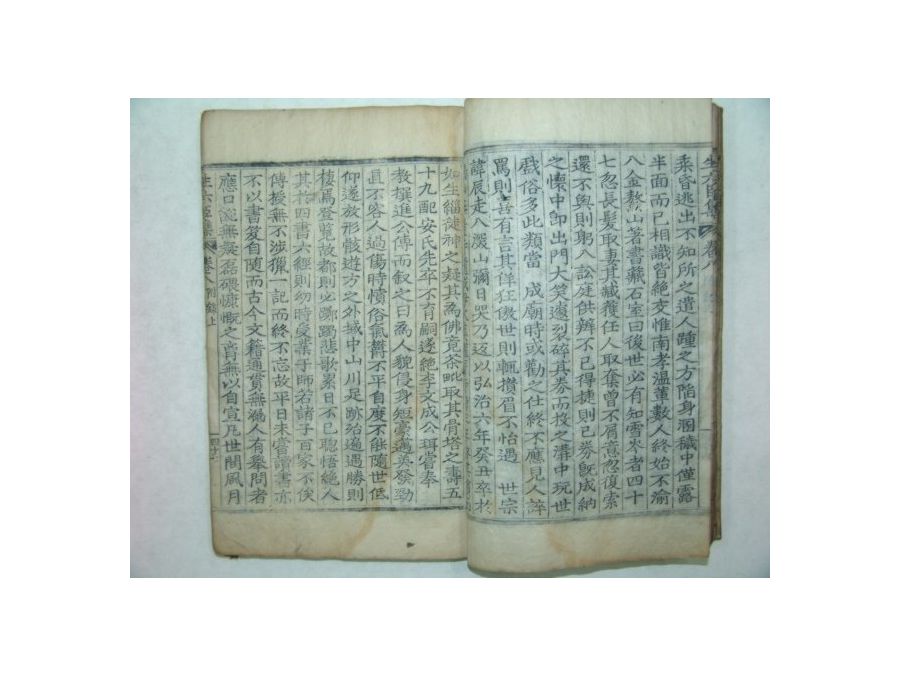 乘昏逃出不知所之遺人踵之方陷身溷穢中僅露
半面而已相識皆絶交惟南孝溫輩數人終始不渝
入金鰲山著書藏石室曰後世必有知雪岑者四十
七忽長髮取妻其臧獲任人取奪曾不屑意忽復索
還不與則躬入訟庭供辨不已得捷則已券旣成納
之懷中卽出門大笑遽裂碎其券而投之溝中玩世
戲俗多此類當 成廟時或勸之仕終不應見人誶
罵則喜有言其佯狂傲世則輒攢眉不怡遇 世宗
諱辰走入深山彌日哭乃返以弘治六年癸丑卒於
如生緇徒神之疑其爲佛竟茶毗取其骨塔之壽五
十九配安氏先卒不育嗣遂絶李文成公珥嘗奉
敎撰進公傳而叙之曰爲人貌侵身短豪邁英發勁
直不容人過傷時憤俗氣欝不平自度不能隨世低
仰遂放形骸遊方之外域中山川足跡殆遍遇勝則
棲焉登覽故都則必躑躅悲歌累日不已聰悟絶人
其於四書六經則幼時受業于師若諸子百家不俟
傳授無不涉獵一記而終不忘故平日未嘗讀書亦
不以書笈自隨而古今文籍通貫無漏人有擧問者
應口說無疑磊磈慷慨之胷無以自宣凡世間風月
生六臣集 卷八 附錄上